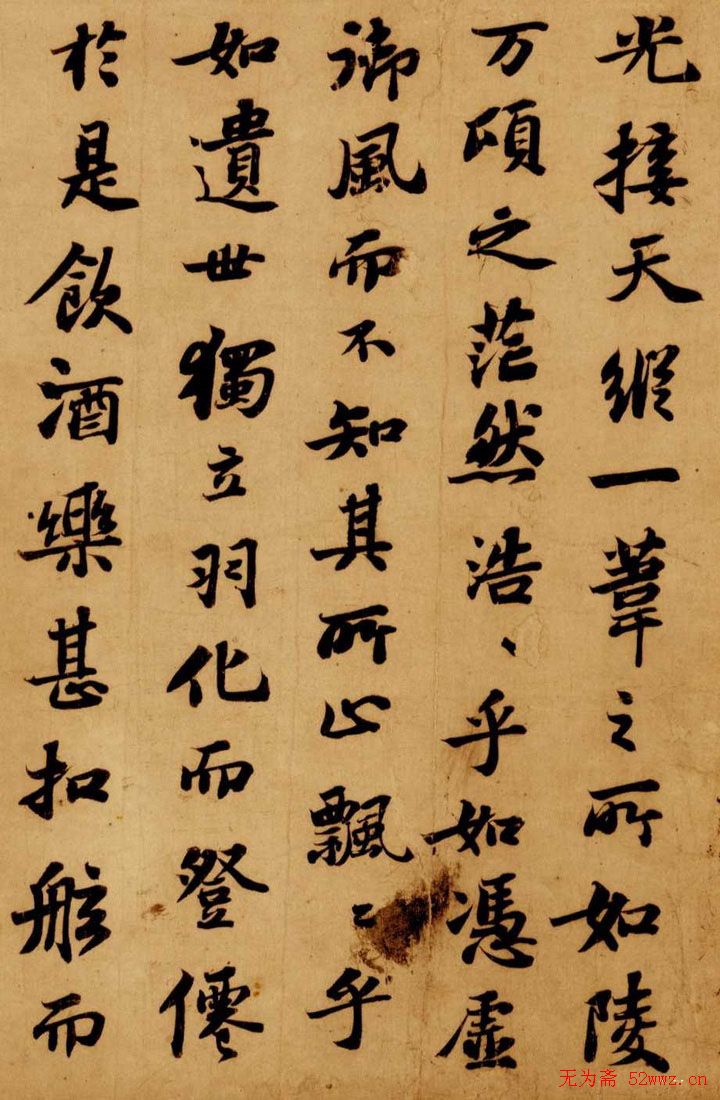 光接天縱一葦之所如陵
万頃之茫然浩〻乎如憑虛
御風而不知其所止飄〻乎
如遺世獨立羽化而登僊
於是飲酒樂甚扣舷而
无为斋 52wwz.cn